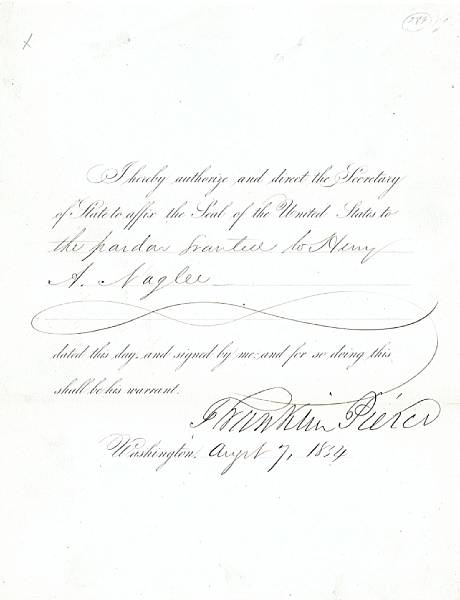 289
x
I hereby authorize and direct the Secretary
of State to affix the Seal of the United States to
the pardon granted to Henry
A. Naglee
dated this day, and signed by me: and for so doing this
shall be his warrant.
Franklin Pierce
Washington, Augst 7, 1854